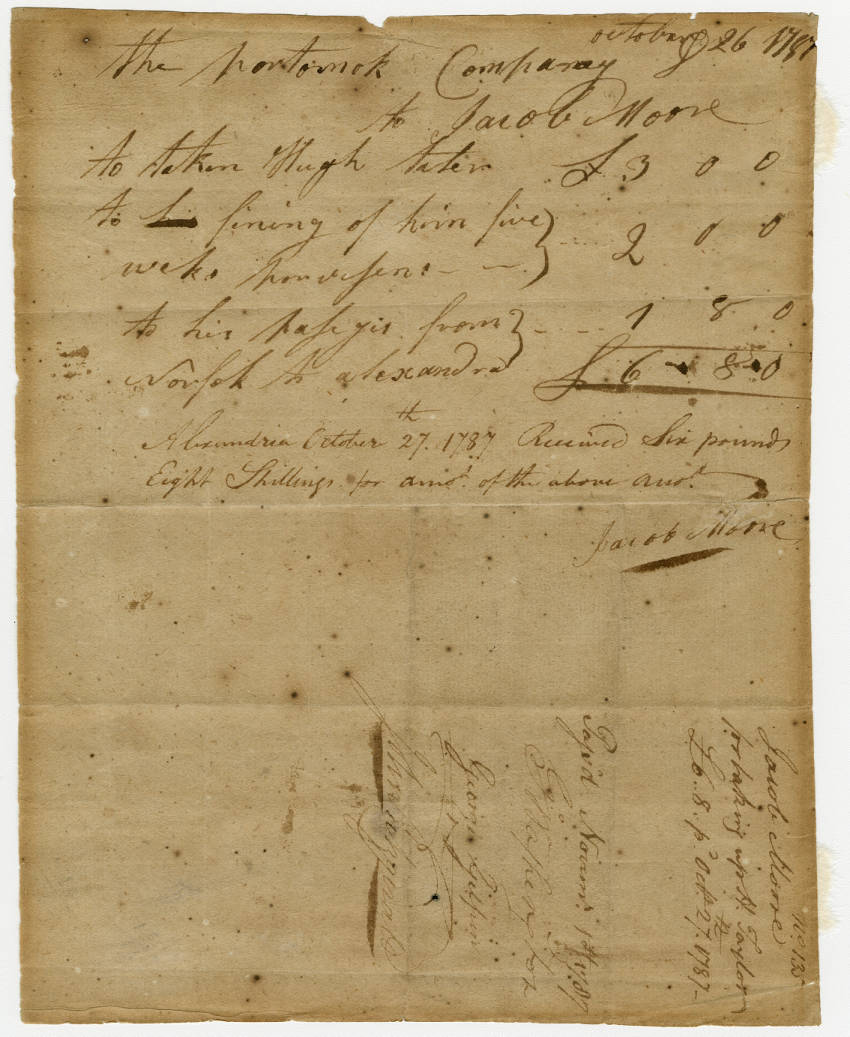 october 26 1787
the portomok Company
to Jacob Moore
to taken Hugh taler £ 3 0 0
to fining of him five
weks provesens - - } 2 0 0
to his passegis from } - 1 8 0
Norfok to alexandra £ 6 8 0
Alexandria October 27.th 1787 Received Six pounds
Eight Shillings for amot. of the above acot.
Jacob Moore
No. 135
Jacob Moore
for taking up H. Taylor
£6..8. pd. Octr. 27th. 1787-
Pass'd Novemr. 1st 1787
Go. Washington
George Gilpin